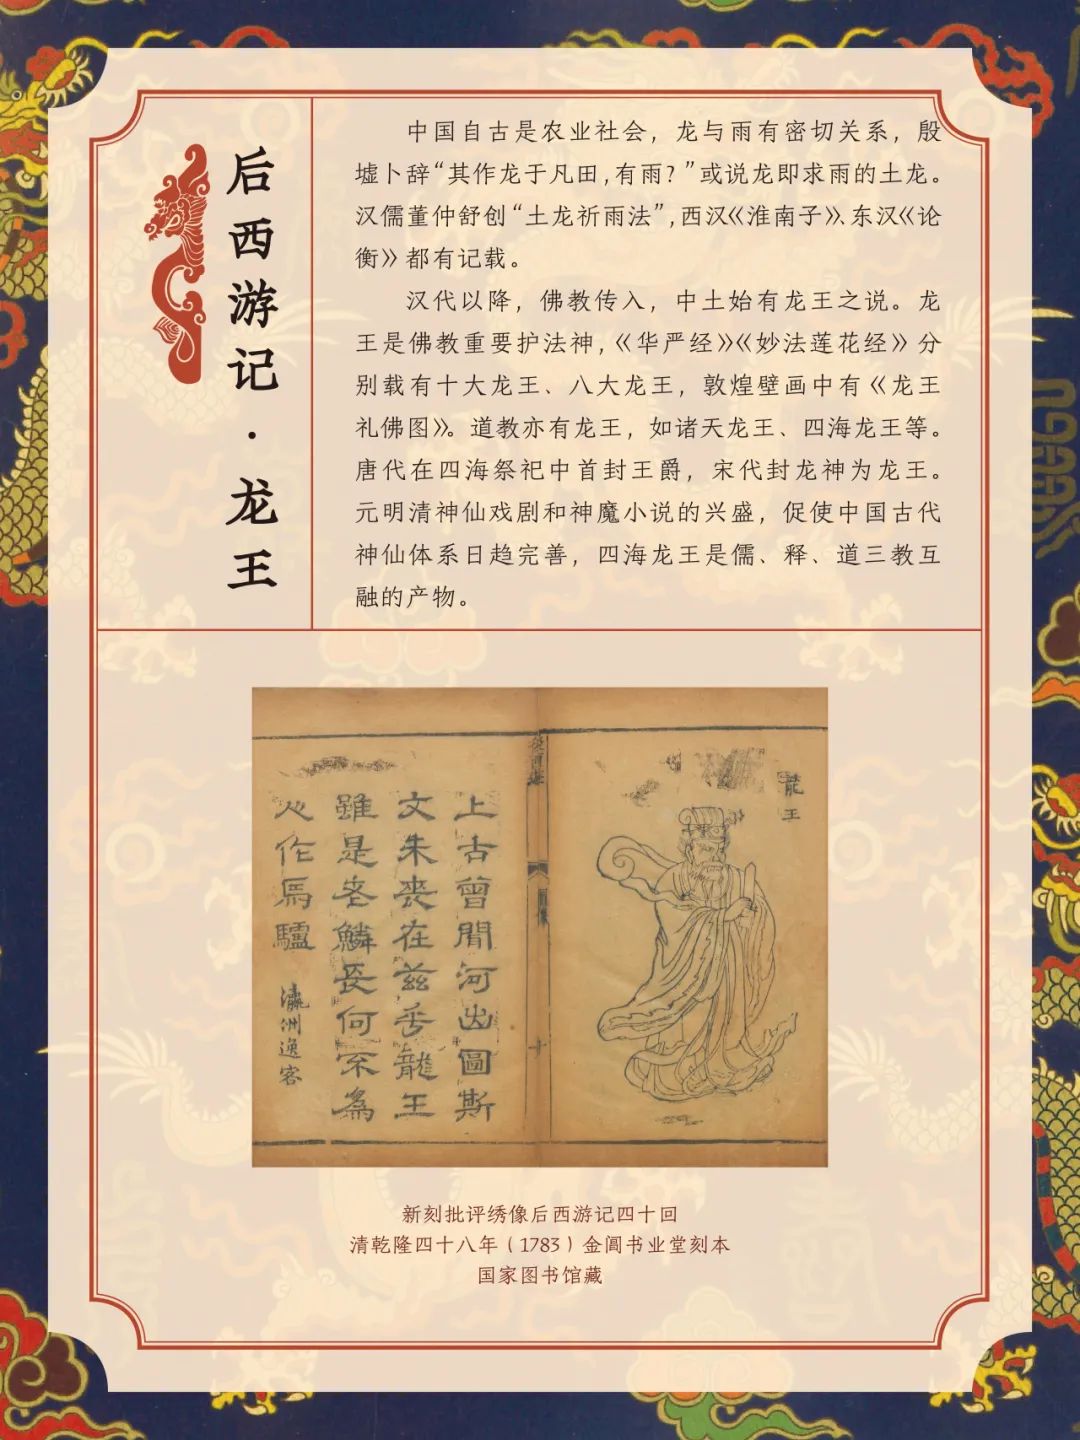 后西游记·龙王
中国自古是农业社会，龙与雨有密切关系，殷
墟卜辞“其作龙于凡田，有雨？”或说龙即求雨的土龙。
汉儒董仲舒创“土龙祈雨法”，西汉《淮南子》、东汉《论
衡》都有记载。
汉代以降，佛教传入，中土始有龙王之说。龙
王是佛教重要护法神，《华严经》《妙法莲花经》分
别载有十大龙王、八大龙王，敦煌壁画中有《龙王
礼佛图》。道教亦有龙王，如诸天龙王、四海龙王等。
唐代在四海祭祀中首封王爵，宋代封龙神为龙王。
元明清神仙戏剧和神魔小说的兴盛，促使中国古代
神仙体系日趋完善，四海龙王是儒、释、道三教互
融的产物。
龍王
上古曾聞河出圖斯
文未喪在茲乎龍王
雖是老鱗長何不為
心作馬驢
瀛洲逸客
新刻批评绣像后西游记四十回
清乾隆四十八年（1783）金阊书业堂刻本
国家图书馆藏